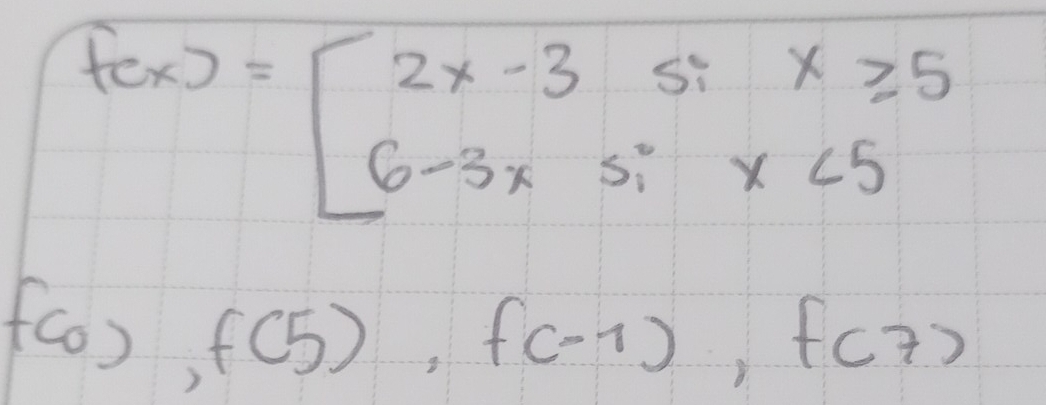 f(x) = [ 2x - 3 si x ≥ 5
6 - 3x si x < 5
f(0), f(5), f(-1), f(7)